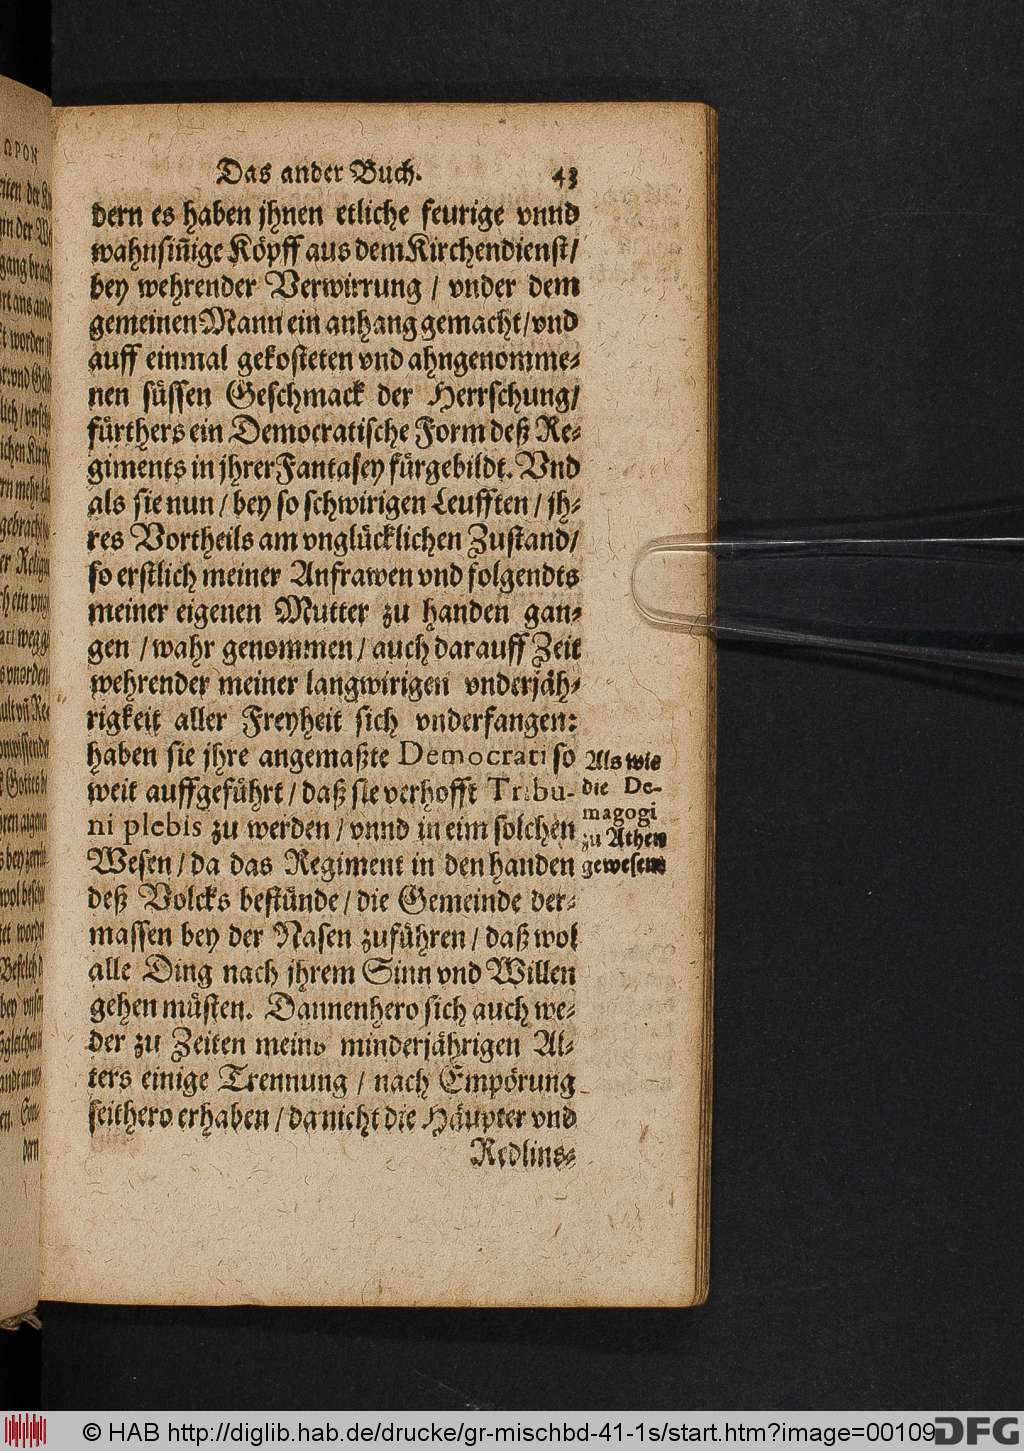 Das ander Buch. 43
dern es haben jhnen etliche feurige vnnd
wahnsiñige Köpff aus dem Kirchendienst/
bey wehrender Verwirrung / vnder dem
gemeinen Mann ein anhang gemacht/vnd
auff einmal gekosteten vnd ahngenomme-
nen süssen Geschmack der Herrschung/
fürthers ein Democratische Form deß Re-
giments in jhrer Fantasey fürgebildt. Vnd
als sie nun / bey so schwirigen Leufften / jh-
res Vortheils am vnglücklichen Zustand/
so erstlich meiner Anfrawen vnd folgendts
meiner eigenen Mutter zu handen gan-
gen / wahr genommen / auch darauff Zeit
wehrender meiner langwirigen vnderjäh-
rigkeit aller Freyheit sich vnderfangen:
haben sie jhre angemaßte Democrati so
weit auffgeführt / daß sie verhofft Tribu-
ni plebis zu werden / vnnd in eim solchen
Wesen / da das Regiment in den handen
deß Volcks bestünde / die Gemeinde der-
massen bey der Nasen zuführen / daß wol
alle Ding nach jhrem Sinn vnd Willen
gehen müsten. Dannenhero sich auch we-
der zu Zeiten meins minderjährigen Al-
ters einige Trennung / nach Empörung
seithero erhaben / da nicht die Häupter vnd
Redlins-
Als wie
die De-
magogi
zu Athen
gewesem
© HAB http://diglib.hab.de/drucke/gr-mischbd-41-1s/start.htm?image=00109
DFG